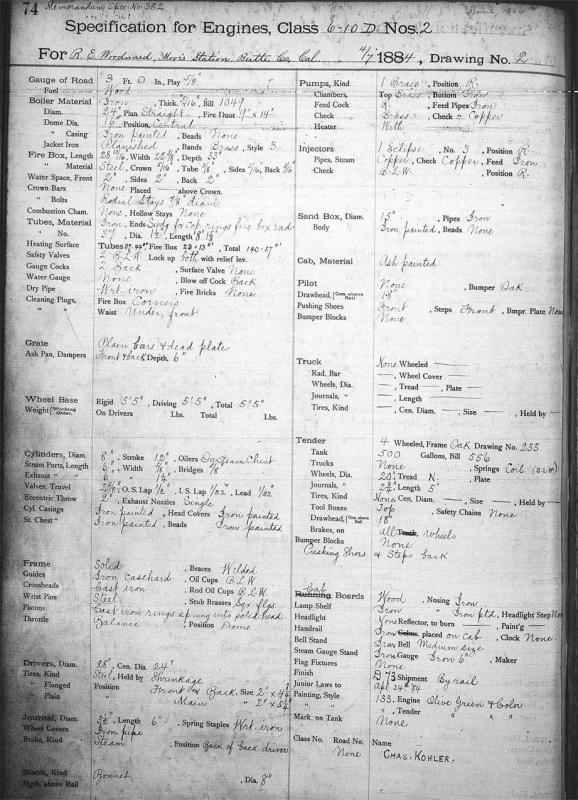 74 Memorandum Spec. No. 382
Specification for Engines, Class 6-10 D Nos. 2
For R. E. Woodward, Station, Butte Co., Cal. 4/7 1884, Drawing No. 2
Gauge of Road 3 Ft. 0 In., Play 5/8"
Fuel Wood
Boiler Material Iron, Thick. 5/16", Bill 1049
Diam. 24", Plan Straight, Fire Door 9" x 14"
Dome Dia. 16", Position Central
" Casing Iron painted, Beads None
Jacket Iron Planished Bands Brass, Style 3
Fire Box, Length 28 Width 22 Depth 33"
" Material Steel, Crown 5/16 Tube 3/8", Sides 5/16, Back 5/16"
Water Space, Front 2", Sides 2", Back 2"
Crown Bars None Placed — above Crown.
" Bolts Radial Stays 7/8" diam
Combustion Cham. None, Hollow Stays None
Tubes, Material Iron, Ends Swdg for Cop. rings fire box end
" No. 27, Dia. 1½", Length 8'
Heating Surface Tubes Fire Box, Total
Safety Valves 2 B.L.W. Lock up both with relief lev.
Gauge Cocks 2 Back, Surface Valve None
Water Gauge None, Blow off Cock Back
Dry Pipe Wrt. iron, Fire Bricks None
Cleaning Plugs, Fire Box Corners
" " Waist Under, front
Grate Plain bars & dead plate
Ash Pan, Dampers Front & back, Depth, 6"
Wheel Base Rigid 5'5", Driving 5'5", Total 5'5"
Weight [Working Order. On Drivers Lbs. Total Lbs.
Cylinders, Diam. 8", Stroke 12", Oilers On Steam Chest
Steam Ports, Length 6", Width 5/8", Bridges 5/8"
Exhaust " " 6" " 1¼"
Valves, Travel O. S. Lap 1/2", I. S. Lap 1/32", Lead 1/32"
Eccentric Throw 2", Exhaust Nozzles Single
Cyl. Casings Iron painted, Head Covers Iron painted
St. Chest " Iron painted, Beads Iron painted
Frame Solid, Braces Welded
Guides Iron casehard, Oil Cups B.L.W.
Crossheads Cast iron, Rod Oil Cups B.L.W.
Wrist Pins Steel, Stub Brasses Sqr flgs
Pistons Cast iron rings sprung into solid head
Throttle Balance, Position Dome
Drivers, Diam. 28", Cen. Dia. 24"
Tires, Kind Steel, Held by Shrinkage
" Flanged Position Front & Back, Size 2" x 4½"
" Plain " Main " 2" x 5½"
Journal, Diam. 3½", Length 6", Spring Staples Wrt. iron
Wheel Covers Iron pipe
Brake, Kind Steam, Position Back of back driver
Stack, Kind Bonnet
Hgth. above Rail , Dia. 8"
Pumps, Kind 1 Brass, Position R.
Chambers, Top Brass Bottom Iron
Feed Cock R., Feed Pipes Iron
Check Brass, Check " Copper
Heater With
Injectors 1 Eclipse, No. 3, Position R.
Pipes, Steam Copper, Check Copper, Feed Iron
Check B.L.W., Position R.
Sand Box, Diam. 15", Pipes Iron
Body Iron painted, Beads None
Cab, Material Ash painted
Pilot None, Bumper Oak
Drawhead, [Cen. above Rail 18"
Pushing Shoes Front, Steps Front, Bmpr. Plate None
Bumper Blocks None
Truck None Wheeled —
Rad. Bar —, Wheel Cover —
Wheels, Dia. —, Tread —, Plate —
Journals, " —, Length —
Tires, Kind —, Cen. Diam. —, Size —, Held by —
Tender 4 Wheeled, Frame Oak Drawing No. 255
Tank 500 Gallons, Bill 556
Trucks None, Springs Coil (B.L.W.)
Wheels, Dia. 20", Tread N., Plate
Journals, " Length 5"
Tires, Kind None, Cen. Diam. —, Size —, Held by —
Tool Boxes Top, Safety Chains None
Drawhead, [Cen. above Rail 18"
Brakes, on all Truck, wheels
Bumper Blocks None
Pushing Shoes & Steps back
Cab
Running Boards Wood, Nosing Iron
Lamp Shelf Iron " Iron ptd, Headlight Step None
Headlight None Reflector, to burn —, Paint'g —
Handrail Iron Colms. placed on cab, Clock None
Bell Stand Iron Bell Medium size
Steam Gauge Stand Iron Gauge Iron 6", Maker
Flag Fixtures None
Finish D 73 Shipment By rail
Junior Laws to Apl. 24" 84
Painting, Style 133, Engine Olive Green & Color
" " , Tender " " "
Mark, on Tank None
Class No. Road No. None Name CHAS. KOHLER.